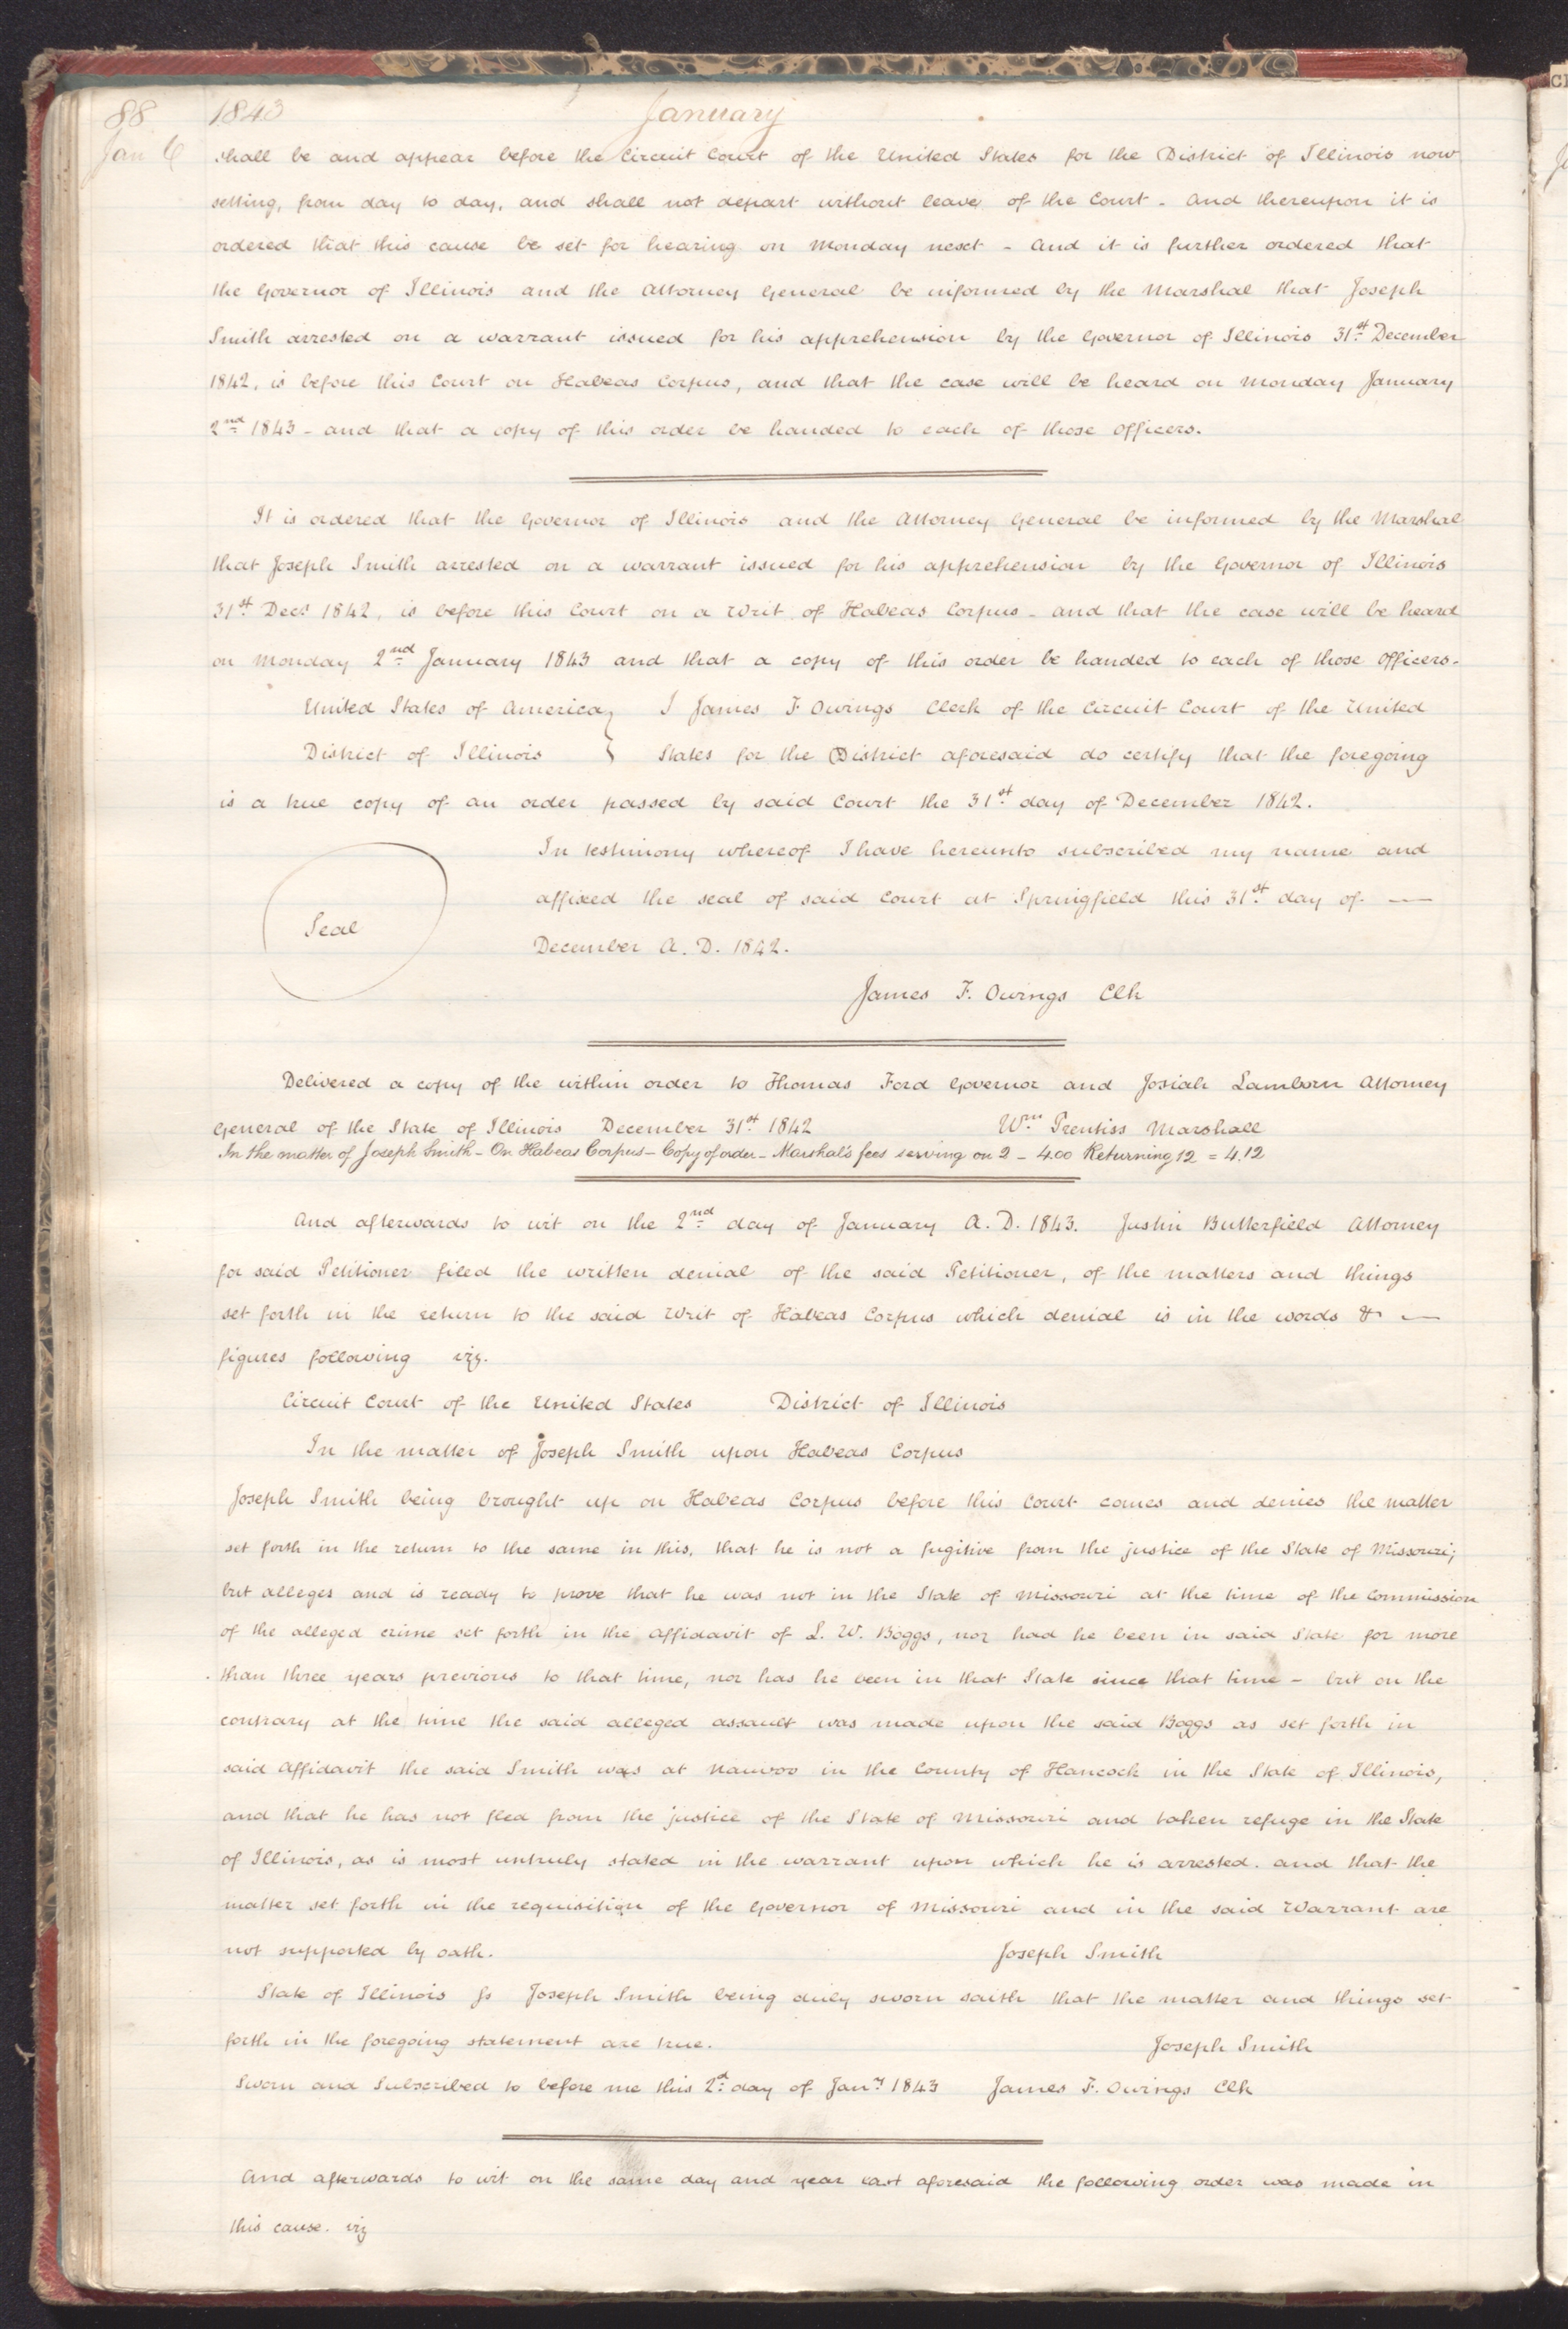 88 1843 January
Jan 6 shall be and appear before the Circuit Court of the United States for the District of Illinois now
setting, from day to day, and shall not depart without leave of the Court - And thereupon it is
ordered that this cause be set for hearing on Monday next - And it is further ordered that
the Governor of Illinois and the Attorney General be informed by the Marshal that Joseph
Smith arrested on a warrant issued for his apprehension by the Governor of Illinois 31st December
1842, is before this Court on Habeas Corpus, and that the case will be heard on Monday January
2nd 1843 - and that a copy of this order be handed to each of those Officers.
It is ordered that the Governor of Illinois and the Attorney General be informed by the Marshal
that Joseph Smith arrested on a warrant issued for his apprehension by the Governor of Illinois
31st Decr 1842, is before this Court on a Writ of Habeas Corpus - and that the case will be heard
on Monday 2nd January 1843 and that a copy of this order be handed to each of those Officers.
United States of America } I James F Owings Clerk of the Circuit Court of the United
District of Illinois } States for the District aforesaid do certify that the foregoing
is a true copy of an order passed by said Court the 31st day of December 1842.
In testimony whereof I have hereunto subscribed my name and
affixed the seal of said Court at Springfield this 31st day of —
Seal
December A. D. 1842.
James F. Owings Clk
Delivered a copy of the within order to Thomas Ford Governor and Josiah Lamborn Attorney
General of the State of Illinois December 31st 1842 Wm Prentiss Marshall
In the matter of Joseph Smith - On Habeas Corpus - Copy of order - Marshal's fees serving on 2 - 4.00 Returning 12 = 4.12
And afterwards to wit on the 2nd day of January A. D. 1843. Justin Butterfield Attorney
for said Petitioner filed the written denial of the said Petitioner, of the matters and things
set forth in the return to the said Writ of Habeas Corpus which denial is in the words & —
figures following viz.
Circuit Court of the United States District of Illinois
In the matter of Joseph Smith upon Habeas Corpus
Joseph Smith being brought up on Habeas Corpus before this Court comes and denies the matter
set forth in the return to the same in this, that he is not a fugitive from the justice of the State of Missouri;
but alleges and is ready to prove that he was not in the State of Missouri at the time of the Commission
of the alleged crime set forth in the affidavit of L. W. Boggs, nor had he been in said State for more
than three years previous to that time, nor has he been in that State since that time - but on the
contrary at the time the said alleged assault was made upon the said Boggs as set forth in
said Affidavit the said Smith was at Nauvoo in the County of Hancock in the State of Illinois,
and that he has not fled from the justice of the State of Missouri and taken refuge in the State
of Illinois, as is most untruly stated in the warrant upon which he is arrested. and that the
matter set forth in the requisition of the Governor of Missouri and in the said Warrant are
not supported by oath. Joseph Smith
State of Illinois ss Joseph Smith being duly sworn saith that the matter and things set
forth in the foregoing statement are true. Joseph Smith
Sworn and Subscribed to before me this 2d day of Jany 1843 James F. Owings Clk
And afterwards to wit on the same day and year last aforesaid the following order was made in
this cause. viz